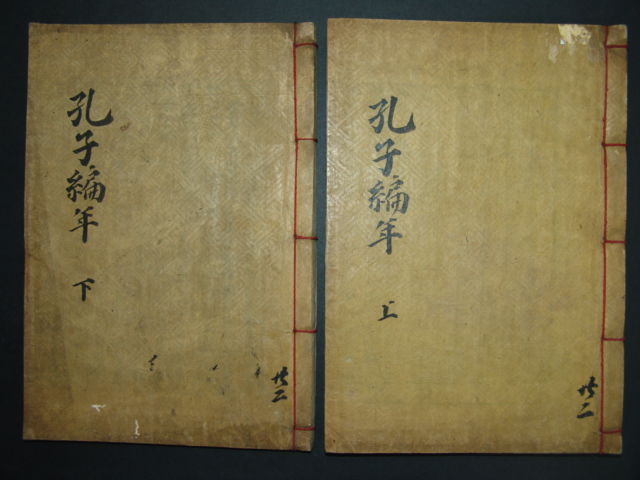 孔子編年
上
共二
孔子編年
下
共二